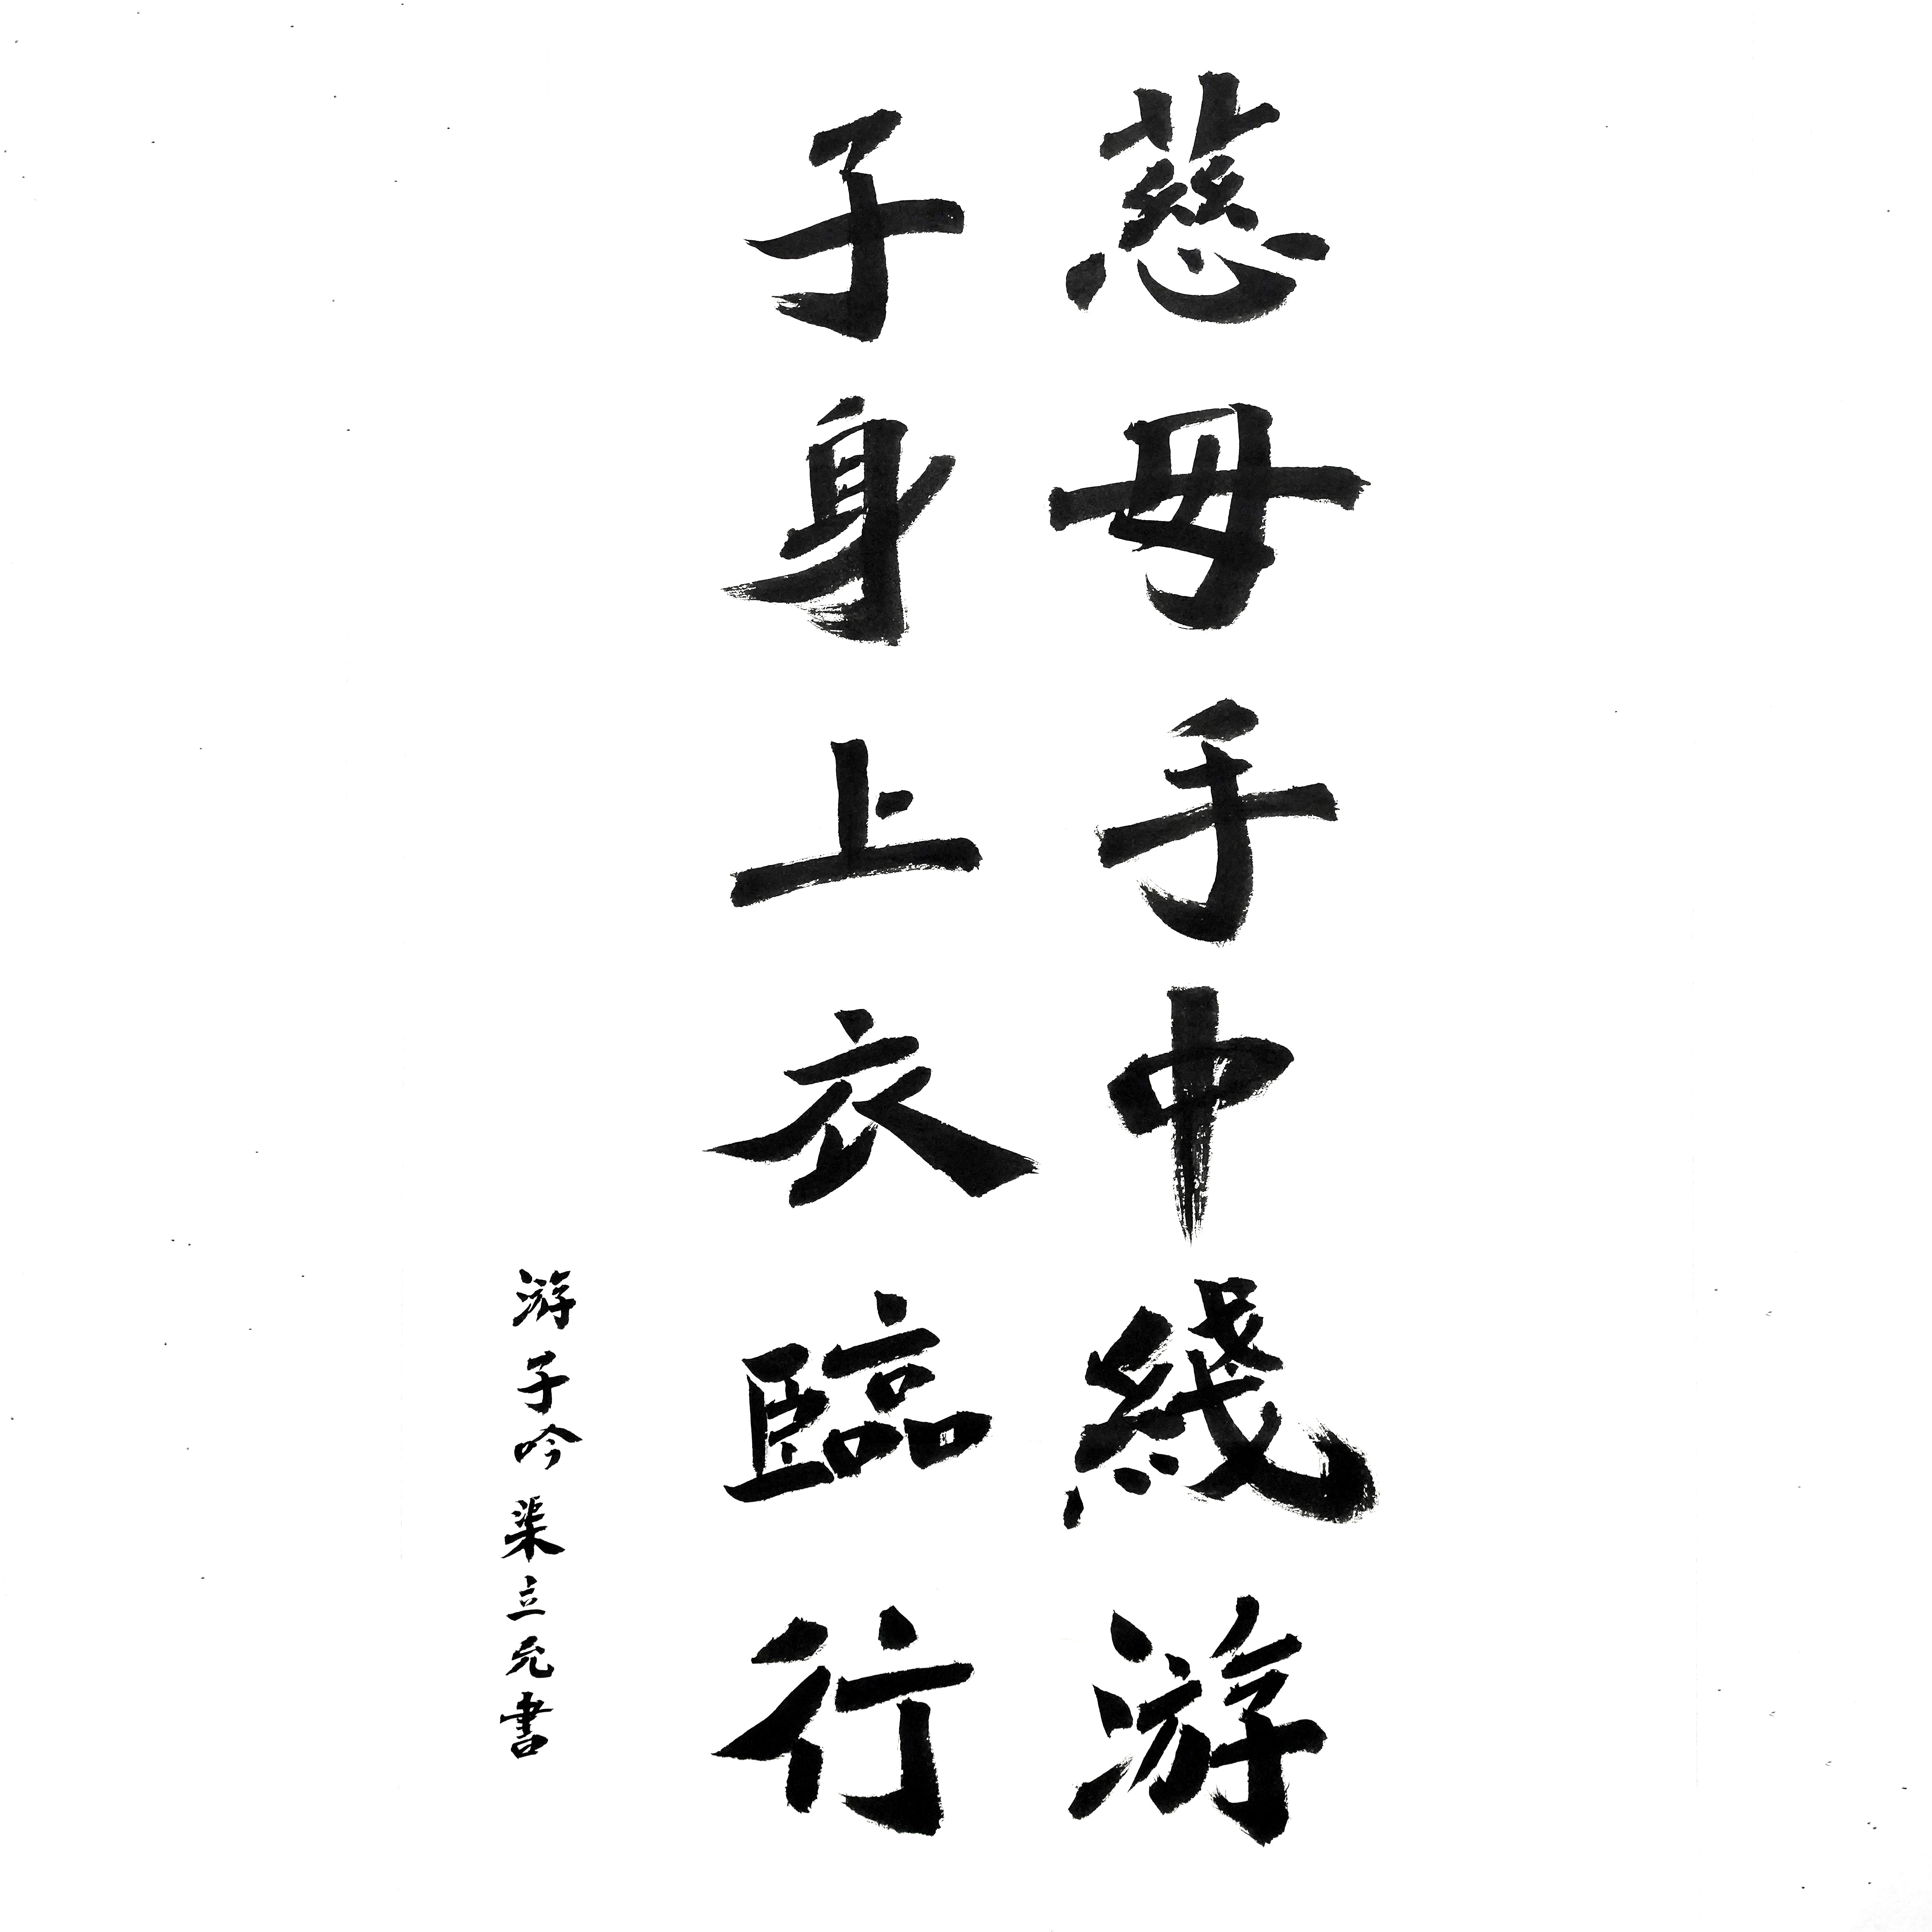 慈母手中綫游
子身上衣臨行
游子吟 渠立允書